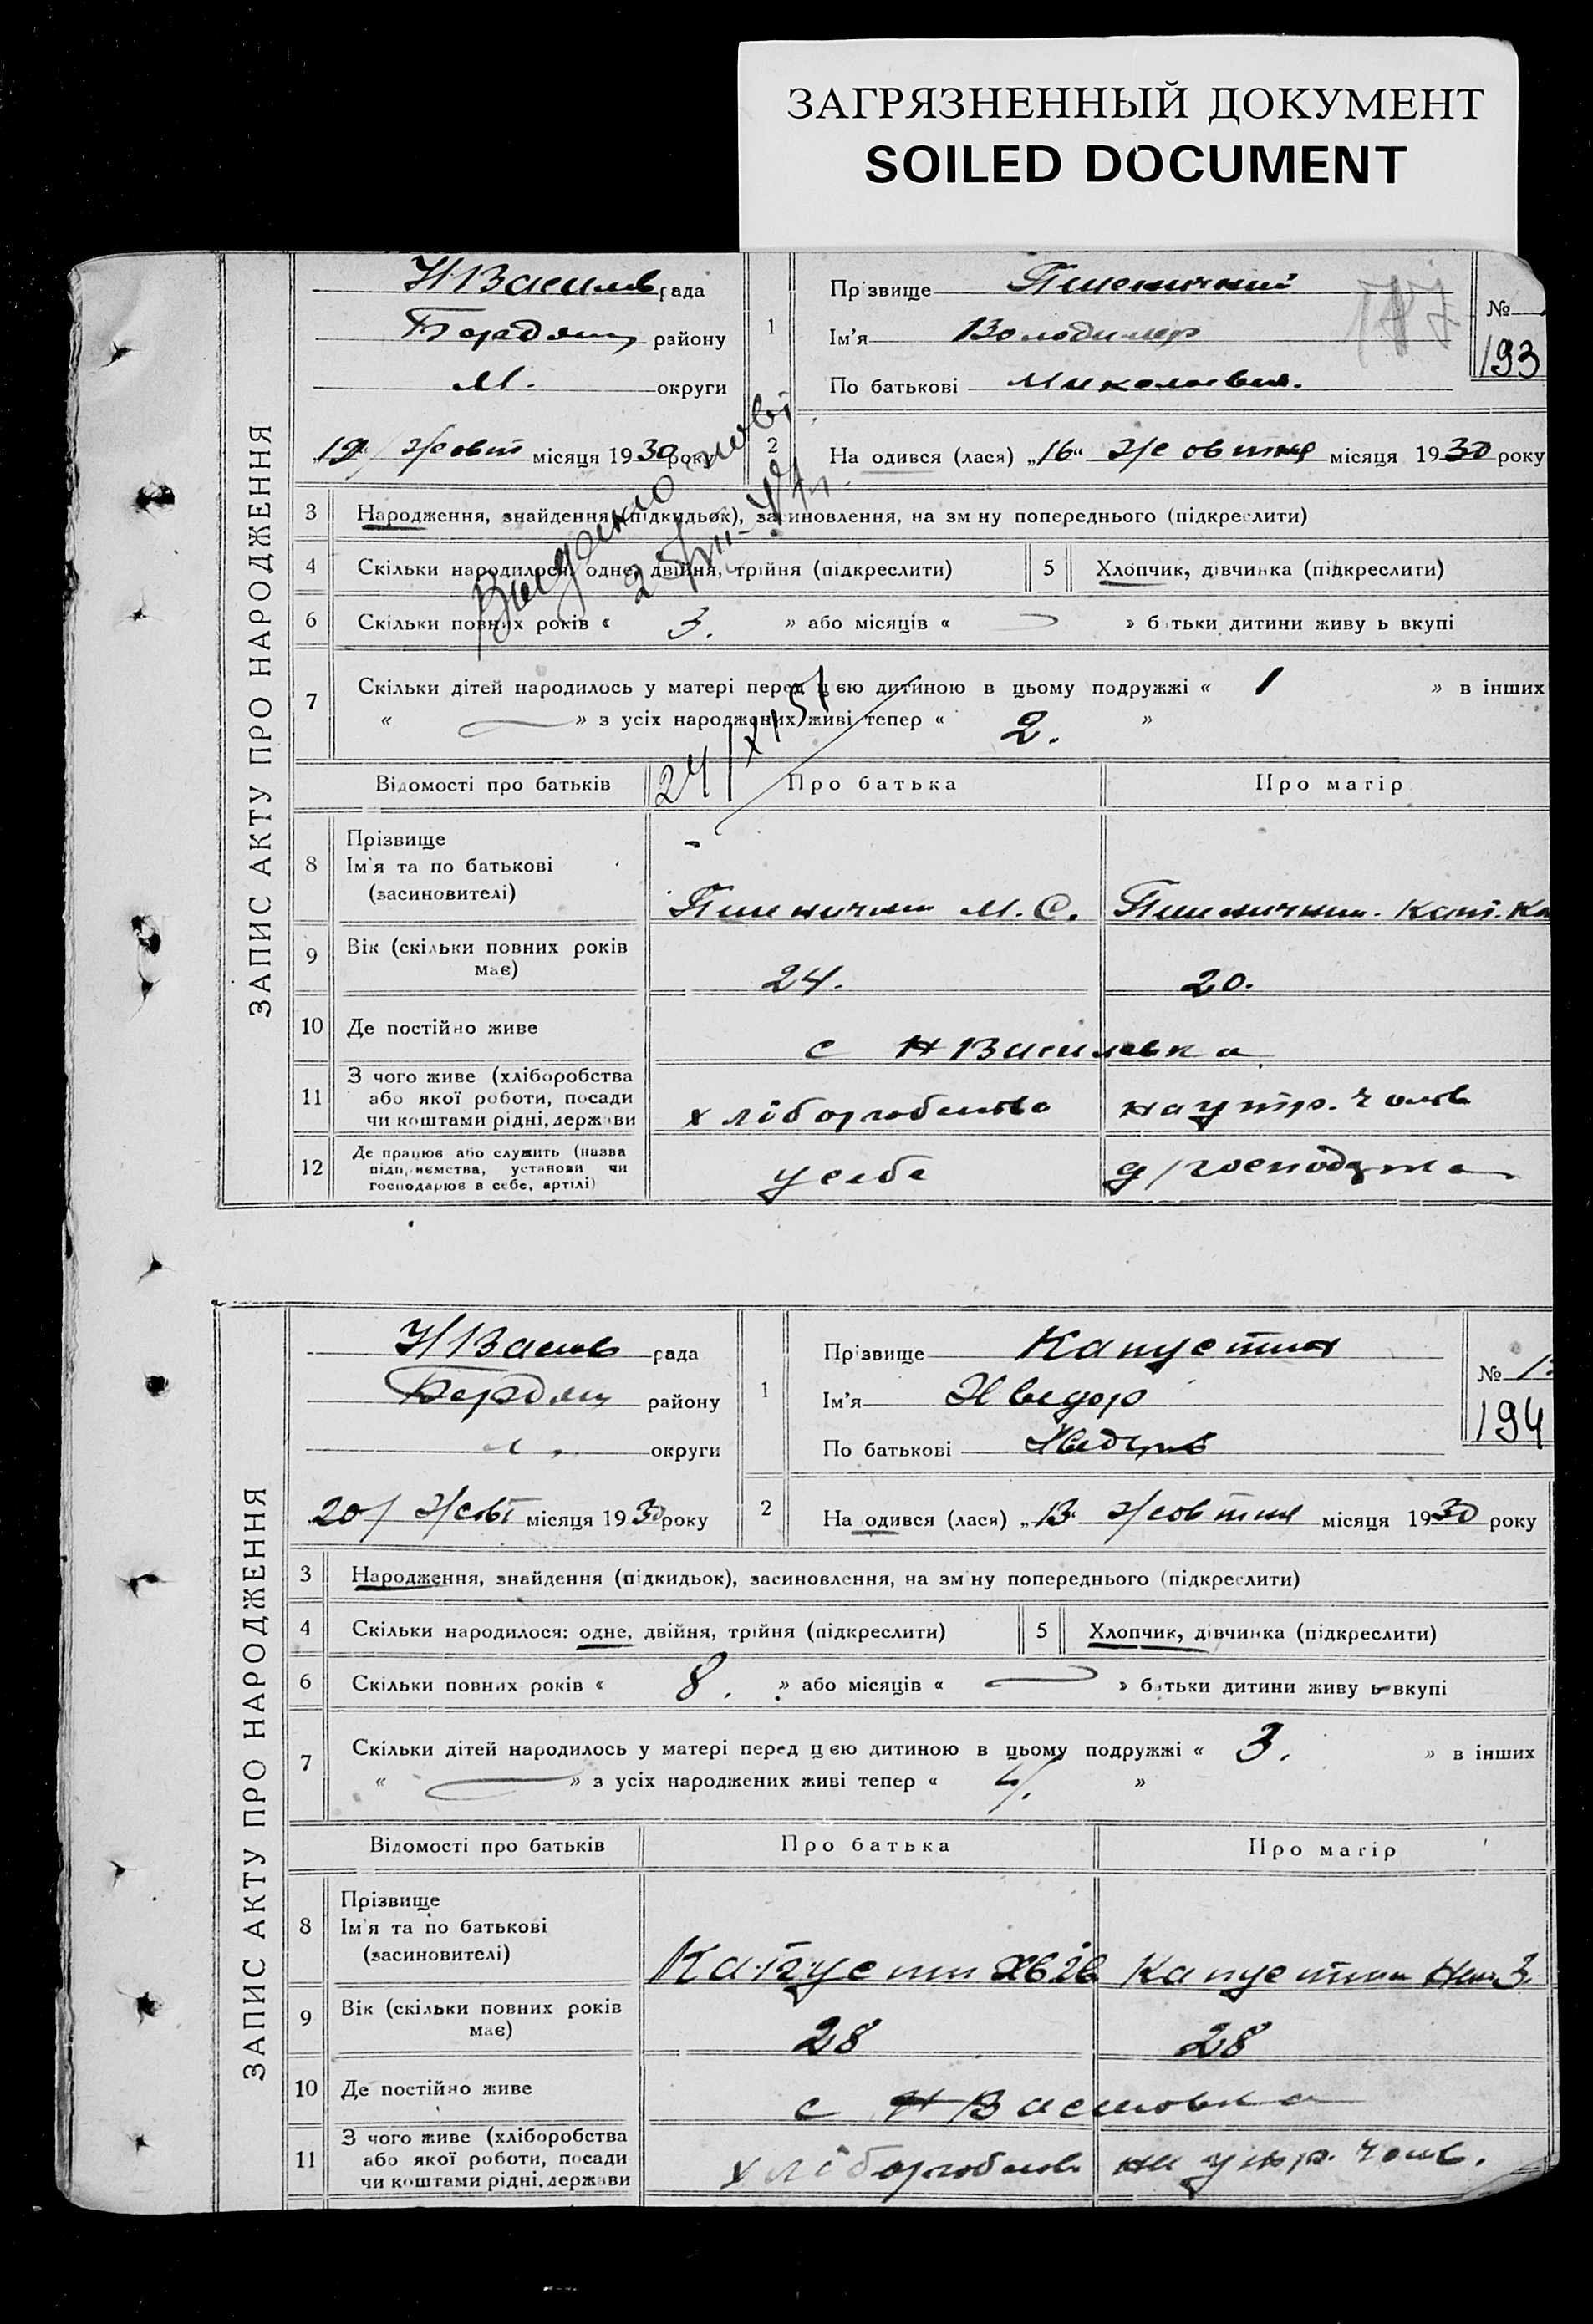 ЗАГРЯЗНЕННЫЙ ДОКУМЕНТ
SOILED DOCUMENT
ЗАПИС АКТУ ПРО НАРОДЖЕННЯ
Н Василів рада
Бердян району
М. округи
19/ Жовт місяця 1930 року
1
Прізвище Пшеничний
Ім'я Володимир
По батькові Миколаєвич.
№
193
2
Народився (лася) „16" Жовтня місяця 1930 року
3 Народження, знайдення (підкидьок), засиновлення, на зміну попереднього (підкреслити)
4 Скільки народилося: одне, двійня, трійня (підкреслити)
5 Хлопчик, дівчинка (підкреслити)
6 Скільки повних років « 3. » або місяців « » батьки дитини живуть вкупі
7 Скільки дітей народилось у матері перед цією дитиною в цьому подружжі « 1 » в інших
« » з усіх народжених живі тепер « 2. »
24/XI 51
Відомості про батьків Про батька Про матір
8 Прізвище
Ім'я та по батькові
(засиновителі)
Пшеничний М. С. Пшенична Кат.
9 Вік (скільки повних років
має)
24. 20.
10 Де постійно живе
с Н Василівка
11 З чого живе (хліборобства
або якої роботи, посади
чи коштами рідні, держави
хліборобства на утр. чолов
12 Де працює або служить (назва
підприємства, установи чи
господарює в себе, артілі)
у себе д/господарка
ЗАПИС АКТУ ПРО НАРОДЖЕННЯ
Н Васил рада
Бердян району
округи
20/ Жовт місяця 1930 року
1
Прізвище Капустин
Ім'я Хведор
По батькові
№ 1
194
2
Народився (лася) „13" Жовтня місяця 1930 року
3 Народження, знайдення (підкидьок), засиновлення, на зміну попереднього (підкреслити)
4 Скільки народилося: одне, двійня, трійня (підкреслити)
5 Хлопчик, дівчинка (підкреслити)
6 Скільки повних років « 8. » або місяців « » батьки дитини живуть вкупі
7 Скільки дітей народилось у матері перед цією дитиною в цьому подружжі « 3. » в інших
« » з усіх народжених живі тепер « 4. »
Відомості про батьків Про батька Про матір
8 Прізвище
Ім'я та по батькові
(засиновителі)
Капустин Капустина
9 Вік (скільки повних років
має)
28 28
10 Де постійно живе
с Н Василовка
11 З чого живе (хліборобства
або якої роботи, посади
чи коштами рідні, держави
хліборобств на утр. чолв.